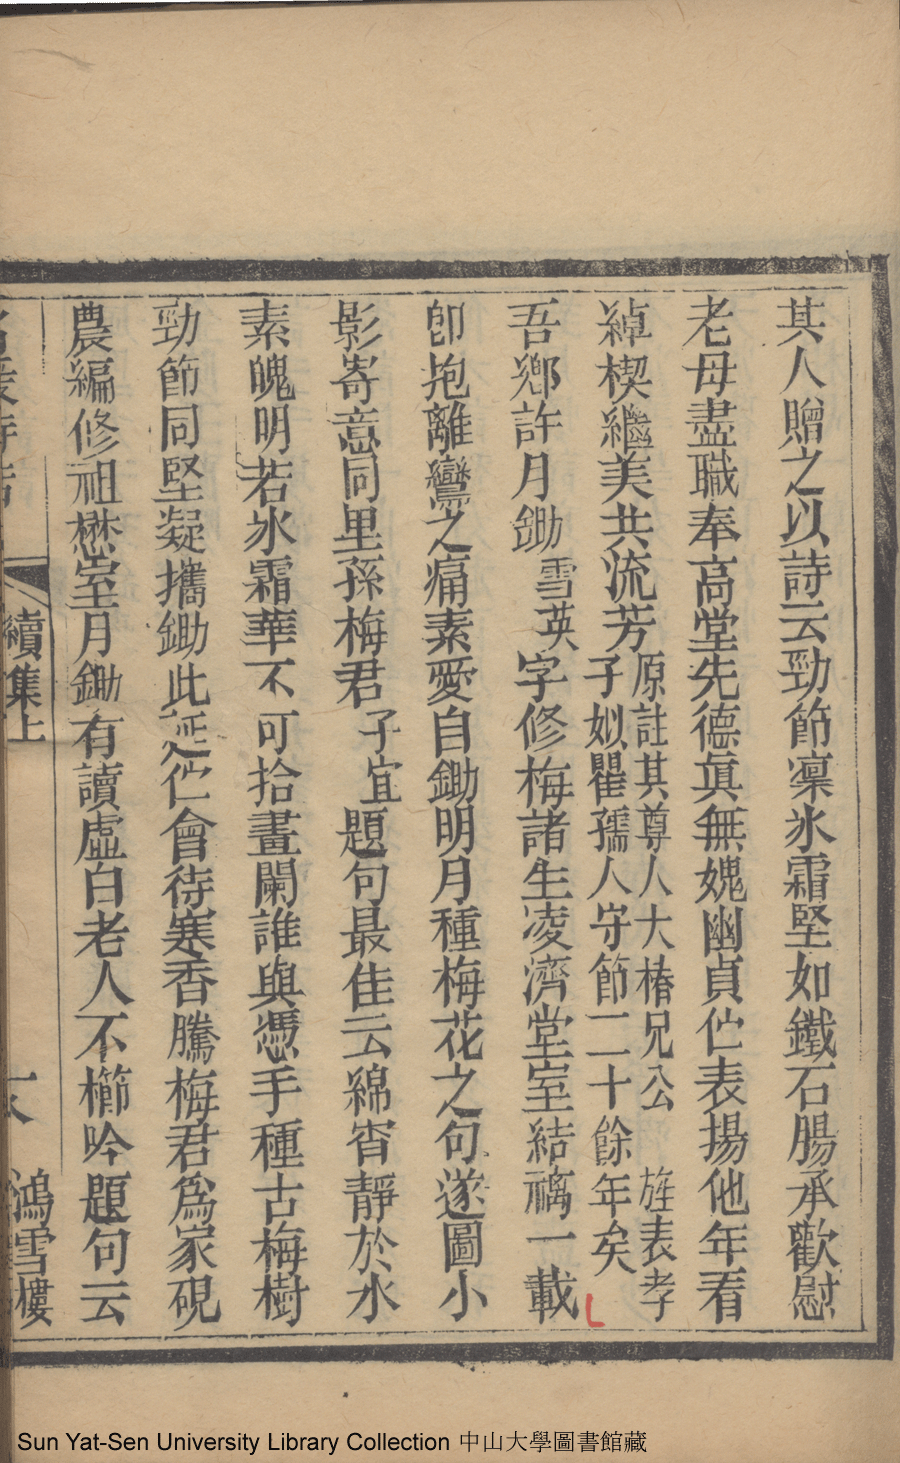 其人贈之以詩云勁節凜氷霜堅如鐵石腸承歡慰
老母盡職奉高堂先德眞無媿幽貞伫表揚他年看
綽楔繼美共流芳原註其尊人大椿兄公 旌表孝子姒瞿孺人守節二十餘年矣
吾鄉許月鋤雪英字修梅諸生凌濟堂室結褵一載
卽抱離鸞之痛素愛自鋤明月種梅花之句遂圖小
影寄意同里孫梅君子宜題句最佳云綿宵靜於水
素魄明若氷霜華不可拾畫闌誰與憑手種古梅樹
勁節同堅凝攜鋤此延伫會待寒香騰梅君爲家硯
農編修祖懋室月鋤有讀虛白老人不櫛吟題句云
續集上
鴻雪樓
Sun Yat-Sen University Library Collection 中山大學圖書館藏